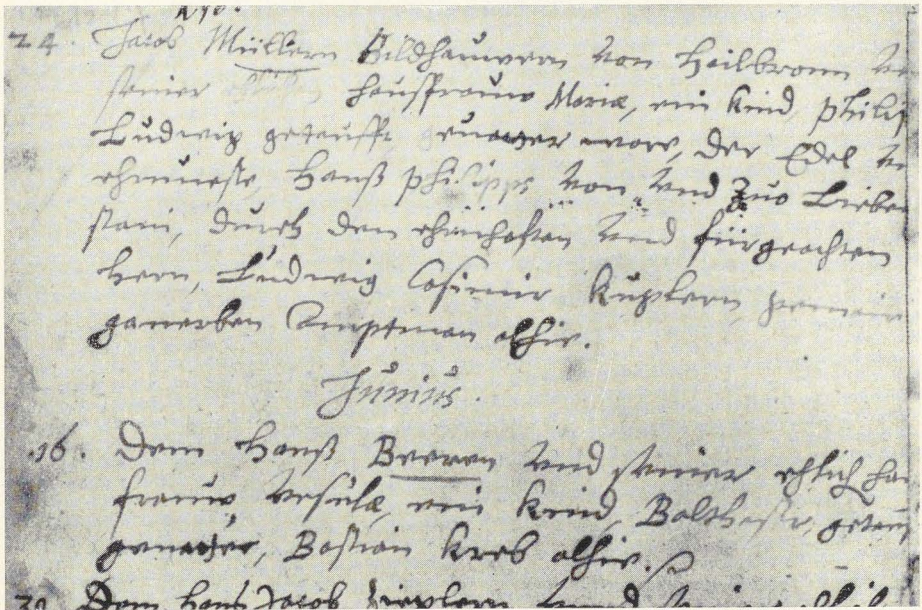 24. Jacob Müllern Bildhauwern von Heilbronn
seiner haussfrauw Mariæ, ein kind, Philip
Ludwig getaufft, gevatter ware, der Edel
ehrnueste, Hanß Philipps von vnd Zuo Lieben
stain, durch den ehrnhafften vnd fürgeachten
Hern, Ludwig Casimir Kuplern, gemain
ganerben Amptman alhie.
Junius.
16. Dem Hanß Beeren vnd seiner ehlich hau
frauw Vrsulæ, ein kind, Balthasar, getau
gevatter, Bastian Kreb alhie.
Dem Hanß Jacob